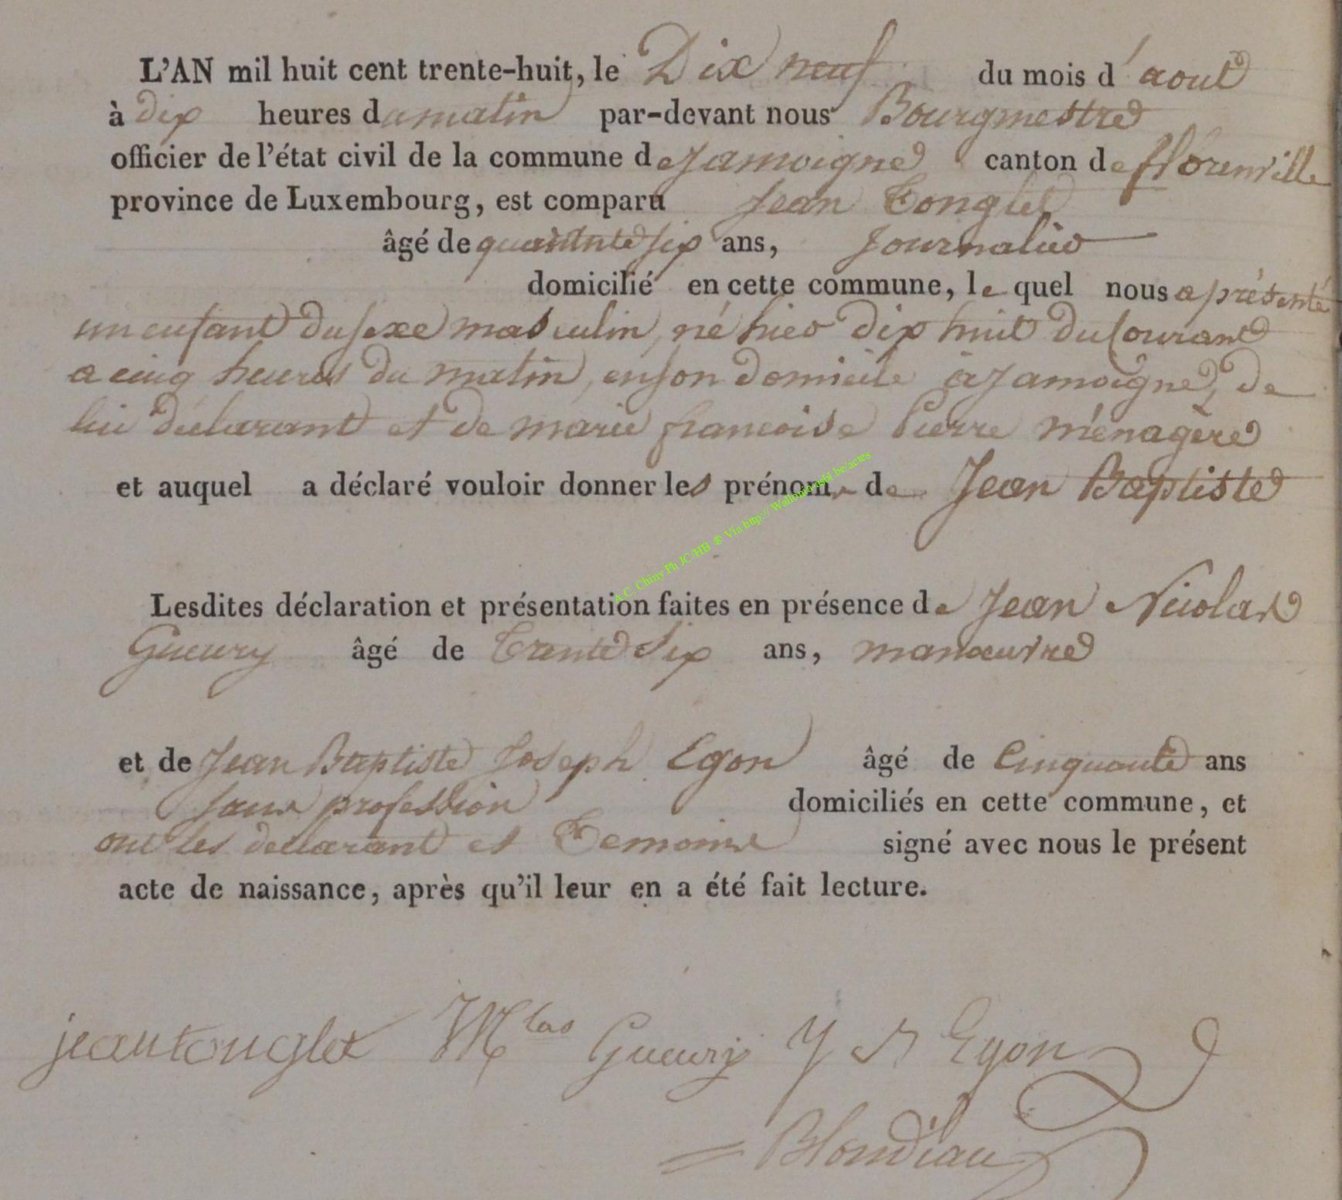 L'AN mil huit cent trente-huit, le Dix neuf du mois d'aout
à dix heures du matin par-devant nous Bourgmestre
officier de l'état civil de la commune de Jamoigne canton de florenville
province de Luxembourg, est comparu Jean Tonglet
âgé de quarante six ans, Journalier
domicilié en cette commune, le quel nous a présenté
un enfant du sexe masculin, né hier dix huit du Courant
a cinq heures du matin, en son domicile à Jamoigne, de
lui déclarant et de marie francoise Pierre ménagère
et auquel a déclaré vouloir donner les prénoms de Jean Baptiste
A.C. Chiny Ph JC/HB & Via http://
Lesdites déclaration et présentation faites en présence de Jean Nicolas
Gueury âgé de trente Six ans, manœuvre
et de Jean Baptiste Joseph Egon âgé de Cinquante ans
sans profession domiciliés en cette commune, et
ont les déclarant et Temoins signé avec nous le présent
acte de naissance, après qu'il leur en a été fait lecture.
jean tonglet Gueury Egon
Blondiau